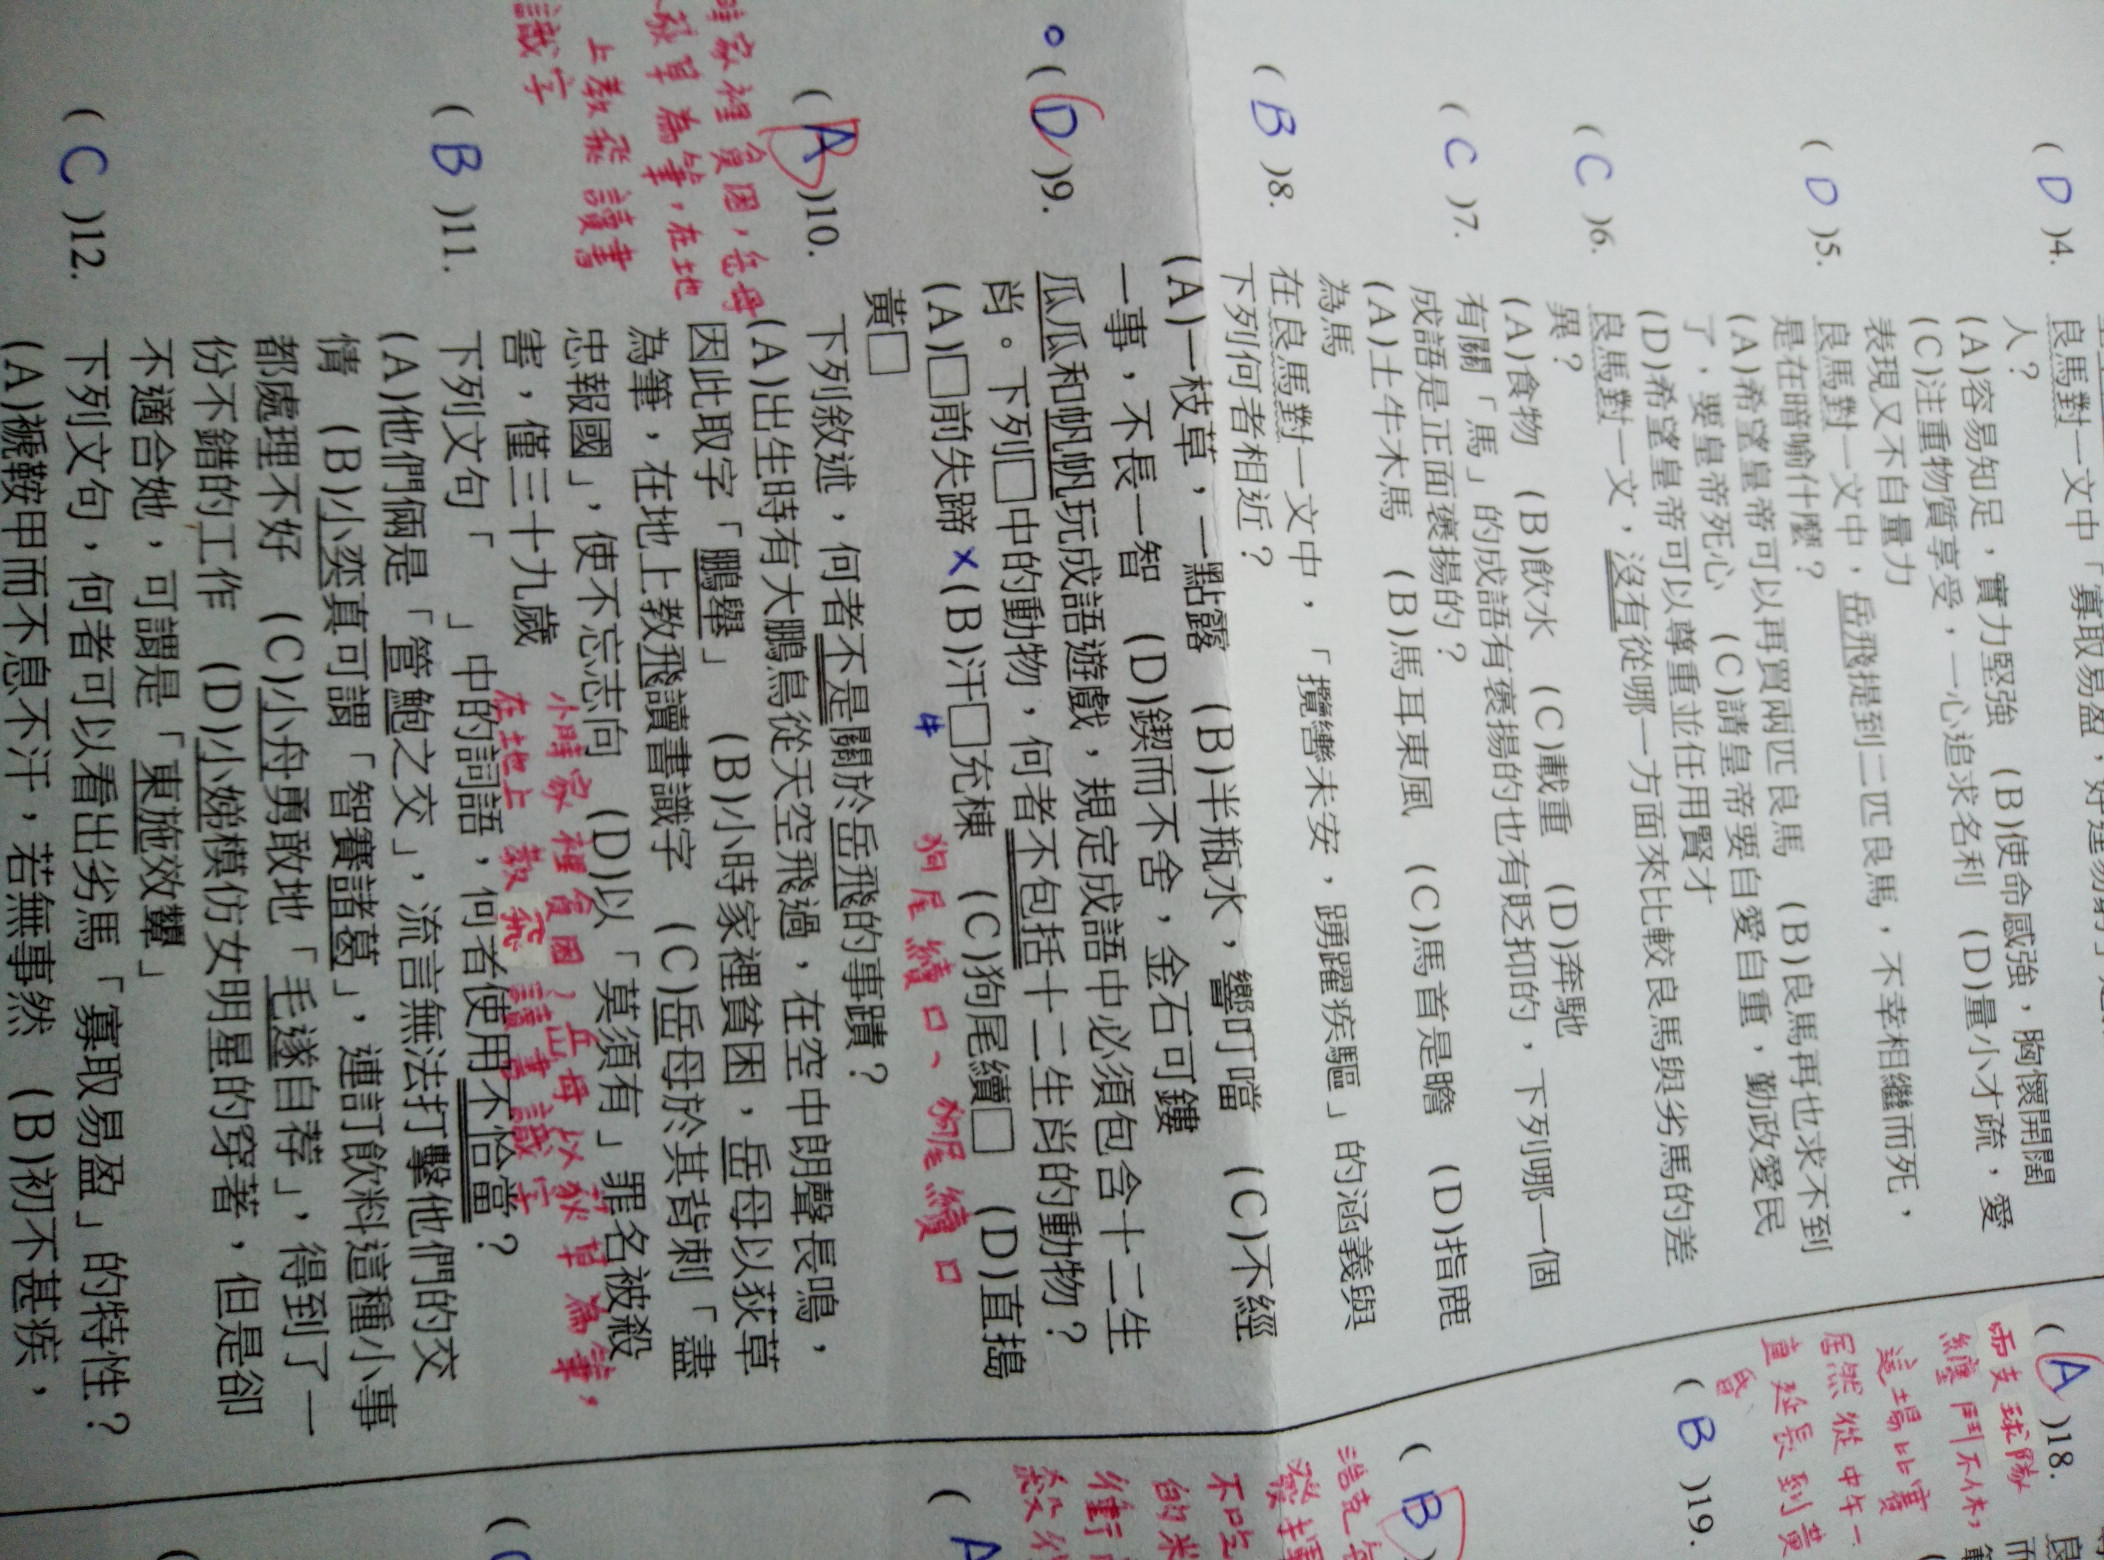 良馬對一文中「寡取易盈,好逞易窮」是
( D )4. 良馬對一文中「寡取易盈,好逞易窮」是
人?
(A)容易知足,實力堅強 (B)使命感強,胸懷開闊
(C)注重物質享受,一心追求名利 (D)量小才疏,愛
表現又不自量力
( D )5. 良馬對一文中,岳飛提到二匹良馬,不幸相繼而死,
是在暗喻什麼?
(A)希望皇帝可以再買兩匹良馬 (B)良馬再也求不到
了,要皇帝死心 (C)請皇帝要自愛自重,勤政愛民
(D)希望皇帝可以尊重並任用賢才
( C )6. 良馬對一文,沒有從哪一方面來比較良馬與劣馬的差
異?
(A)食物 (B)飲水 (C)載重 (D)奔馳
( C )7. 有關「馬」的成語有褒揚的也有貶抑的,下列哪一個
成語是正面褒揚的?
(A)土牛木馬 (B)馬耳東風 (C)馬首是瞻 (D)指鹿
為馬
( B )8. 在良馬對一文中,「攬轡未安,踴躍疾驅」的涵義與
下列何者相近?
(A)一枝草,一點露 (B)半瓶水,響叮噹 (C)不經
一事,不長一智 (D)鍥而不舍,金石可鏤
( D )9. 瓜瓜和帆帆玩成語遊戲,規定成語中必須包含十二生
肖。下列□中的動物,何者不包括十二生肖的動物?
(A)□前失蹄 (B)汗□充棟 (C)狗尾續□ (D)直搗
黃□
牛
狗尾續口、狗尾續口
( A )10. 下列敘述,何者不是關於岳飛的事蹟?
(A)出生時有大鵬鳥從天空飛過,在空中朗聲長鳴,
因此取字「鵬舉」 (B)小時家裡貧困,岳母以荻草
為筆,在地上教飛讀書識字 (C)岳母於其背刺「盡
忠報國」,使不忘志向 (D)以「莫須有」罪名被殺
害,僅三十九歲
時家裡貧困,岳母
荻草為筆,在地
上教飛讀書
識字
小時家裡貧困,岳母以荻草為筆,
在地上教飛讀書識字
( B )11. 下列文句「 」中的詞語,何者使用不恰當?
(A)他們倆是「管鮑之交」,流言無法打擊他們的交
情 (B)小奕真可謂「智賽諸葛」,連訂飲料這種小事
都處理不好 (C)小舟勇敢地「毛遂自荐」,得到了一
份不錯的工作 (D)小娣模仿女明星的穿著,但是卻
不適合她,可謂是「東施效顰」
( C )12. 下列文句,何者可以看出劣馬「寡取易盈」的特性?
(A)褫鞍甲而不息不汗,若無事然 (B)初不甚疾,
( A )18.
兩支球隊
纏鬥不休,
這場比賽
居然從中午一
直延長到黃
昏
( B )19.
( B )
( A